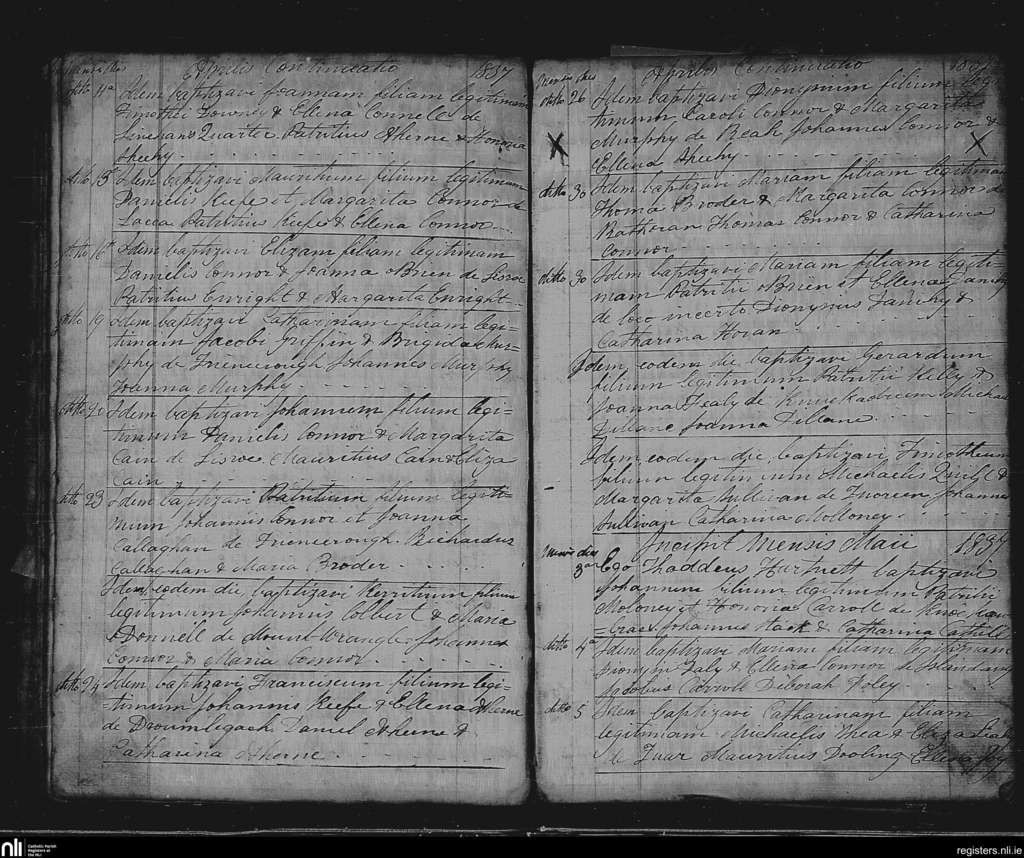 Aprilis Continuatio 1837
ditto 4a Idem baptizavi Joannam filiam legitimam
Timothei Downey & Ellena Connell de
Quarter Patritius Aherne & Honoria
Sheehy
ditto 15 Idem baptizavi Mauritium filium legitimum
Danielis Keefe et Margarita Connor de
Lacca Patritius Keefe & Ellena Connor
ditto 16 Idem baptizavi Elizam filiam legitimam
Danielis Connor & Joanna Brien de Lisroe
Patritius Enright & Margarita Enright
ditto 19 Idem baptizavi Catharinam filiam legi=
timam Jacobi Griffin & Brigida Mur=
phy de Johannes Murphy
Joanna Murphy
ditto 21 Idem baptizavi Johannem filium legi=
timum Danielis Connor & Margarita
Cain de Lisroe Mauritius Cain & Eliza
Cain
ditto 23 Idem baptizavi Patritium filium legiti=
mum Johannis Connor et Joanna
Callaghan de Richardus
Callaghan & Maria Broder
Idem eodem die baptizavi filium
legitimum Johannis Colbert & Maria
Donnell de Mount Johannes
Connor & Maria Connor
ditto 24 Idem baptizavi Franciscum filium legi=
=timum Johannis Keefe & Ellena Aherne
de Daniel Aherne &
Catharina Aherne
Mensis dies Aprilis Continuatio
ditto 26 Idem baptizavi Dionysium filium legi
timum Caroli Connor & Margarita
X Murphy de Beah Johannes Connor & X
Ellena Sheehy
ditto 30 Idem baptizavi Mariam filiam legitimam
Thoma Broder & Margarita Connor de
Rathoran Thomas Connor & Catharina
Connor
ditto 30 Idem baptizavi Mariam filiam legiti
mam Patritii Brien et Ellena
de loco incerto Dionysius &
Catharina Horan
Idem eodem die baptizavi Gerardum
filium legitimum Patritii Kelly &
Joanna Healy de Michael
Dillane Joanna Dillane
Idem eodem die baptizavi Timotheum
filium legitimum Michaelis Quilf &
Margarita Sullivan de Johannes
Sullivan Catharina Molloney
Incipit Mensis Maii 1837
Mensis dies
3a Ego Thaddeus Hartnett baptizavi
Johannem filium legitimum Patritii
Moloney et Honoria Carroll de
Johannes Stack & Catharina Cahill
ditto 4a Idem baptizavi Mariam filiam legitimam
Daly & Ellena Connor de
Jacobus Carroll Deborah Foley
ditto 5 Idem baptizavi Catharinam filiam
legitimam Michaelis Shea & Eliza
de Mauritius Dooling Ellena
nli
Catholic Parish
Registers at
the NLI
registers.nli.ie